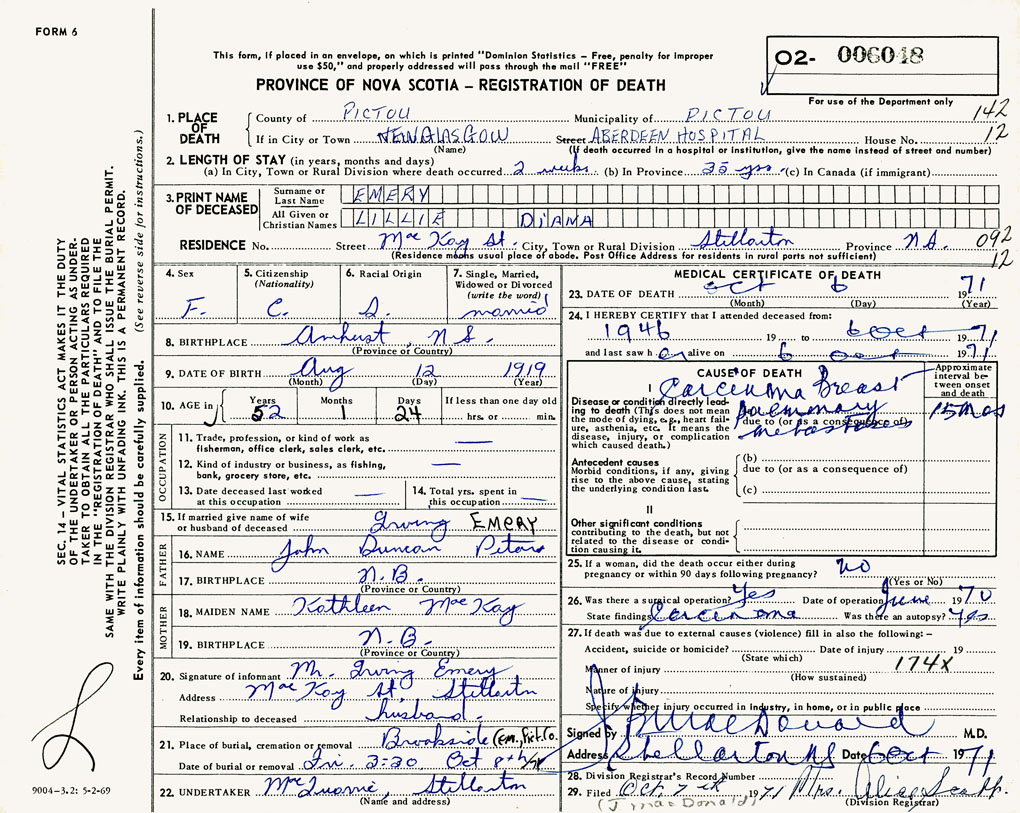 FORM 6
This form, if placed in an envelope, on which is printed "Dominion Statistics – Free, penalty for improper
use $50," and properly addressed will pass through the mail "FREE"
O2- 006048
For use of the Department only
PROVINCE OF NOVA SCOTIA – REGISTRATION OF DEATH
1. PLACE OF DEATH
County of PICTOU Municipality of PICTOU 142
If in City or Town NEW GLASGOW Street ABERDEEN HOSPITAL House No. 12
(Name) (If death occurred in a hospital or institution, give the name instead of street and number)
2. LENGTH OF STAY (in years, months and days)
(a) In City, Town or Rural Division where death occurred 2 weeks (b) In Province 35 yrs. (c) In Canada (if immigrant)
3. PRINT NAME OF DECEASED
Surname or Last Name EMERY
All Given or Christian Names LILLIE DIANA
RESIDENCE No. Street MacKay St. City, Town or Rural Division Stellarton Province N.S. 092
(Residence means usual place of abode. Post Office Address for residents in rural parts not sufficient) 12
4. Sex
F.
5. Citizenship
(Nationality)
C.
6. Racial Origin
7. Single, Married,
Widowed or Divorced
(write the word)
married
8. BIRTHPLACE Amherst, N.S.
(Province or Country)
9. DATE OF BIRTH Aug 12 1919
(Month) (Day) (Year)
10. AGE in
Years Months Days If less than one day
52 1 24 hrs. or min.
OCCUPATION
11. Trade, profession, or kind of work as
fisherman, office clerk, sales clerk, etc. —
12. Kind of industry or business, as fishing,
bank, grocery store, etc. —
13. Date deceased last worked
at this occupation —
14. Total yrs. spent in
this occupation —
15. If married give name of wife
or husband of deceased Irving EMERY
FATHER
16. NAME John Duncan Peters
17. BIRTHPLACE N.B.
(Province or Country)
MOTHER
18. MAIDEN NAME Kathleen MacKay
19. BIRTHPLACE N.B.
(Province or Country)
20. Signature of informant Mr. Irving Emery
Address MacKay St Stellarton
Relationship to deceased husband.
21. Place of burial, cremation or removal Brookside Cem, Pict. Co.
Date of burial or removal Fri. 2:30, Oct 8th/71
22. UNDERTAKER Stellarton
(Name and address)
MEDICAL CERTIFICATE OF DEATH
23. DATE OF DEATH Oct 6 1971
(Month) (Day) (Year)
24. I HEREBY CERTIFY that I attended deceased from:
1946 19 to 6 Oct 1971
and last saw her alive on 6 Oct 1971
CAUSE OF DEATH
Approximate
interval be-
tween onset
and death
I
Carcinoma Breast
Disease or condition directly lead-
ing to death (This does not mean
the mode of dying, e.g., heart fail-
ure, asthenia, etc. It means the
disease, injury, or complication
which caused death.)
pulmonary 15 mos
due to (or as a consequence of)
metastases
Antecedent causes
Morbid conditions, if any, giving
rise to the above cause, stating
the underlying condition last.
(b)
due to (or as a consequence of)
(c)
II
Other significant conditions
contributing to the death, but not
related to the disease or condi-
tion causing it.
25. If a woman, did the death occur either during
pregnancy or within 90 days following pregnancy? no
(Yes or No)
26. Was there a surgical operation? Yes Date of operation June 1970
State findings Carcinoma Was there an autopsy? Yes
27. If death was due to external causes (violence) fill in also the following: –
Accident, suicide or homicide? Date of injury 19
(State which)
Manner of injury 174X
(How sustained)
Nature of injury
Specify whether injury occurred in industry, in home, or in public place
Signed by J B MacDonald M.D.
Address Stellarton NS Date 6 Oct 1971
28. Division Registrar's Record Number
29. Filed Oct. 7th 1971 Mrs. Alice
(J MacDonald) (Division Registrar)
SEC. 14 – VITAL STATISTICS ACT MAKES IT THE DUTY
OF THE UNDERTAKER OR PERSON ACTING AS UNDER-
TAKER TO OBTAIN ALL THE PARTICULARS REQUIRED
IN THE "REGISTRATION OF DEATH" AND TO FILE THE
SAME WITH THE DIVISION REGISTRAR WHO SHALL ISSUE THE BURIAL PERMIT.
WRITE PLAINLY WITH UNFADING INK. THIS IS A PERMANENT RECORD.
Every item of information should be carefully supplied. (See reverse side for instructions.)
9004-3.2: 5-2-69